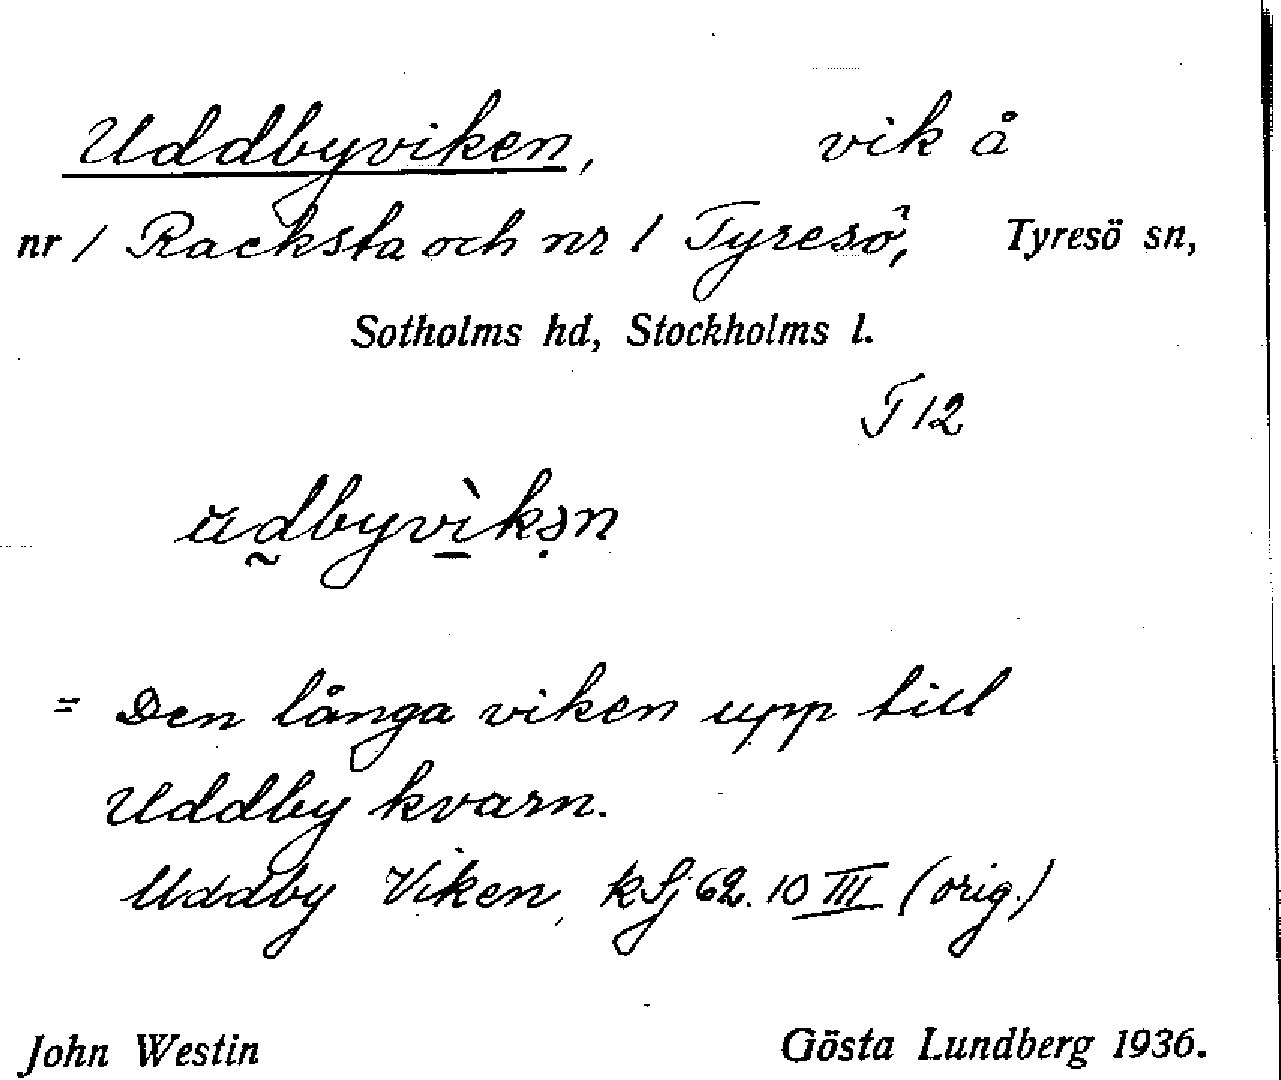 Uddbyviken, vik å
nr 1 Racksta och nr 1 Tyresö, Tyresö sn,
Sotholms hd, Stockholms l.
T 12
= Den långa viken upp till
Uddby kvarn.
Uddby Viken, kSj 62. 10 III (orig.)
John Westin Gösta Lundberg 1936.